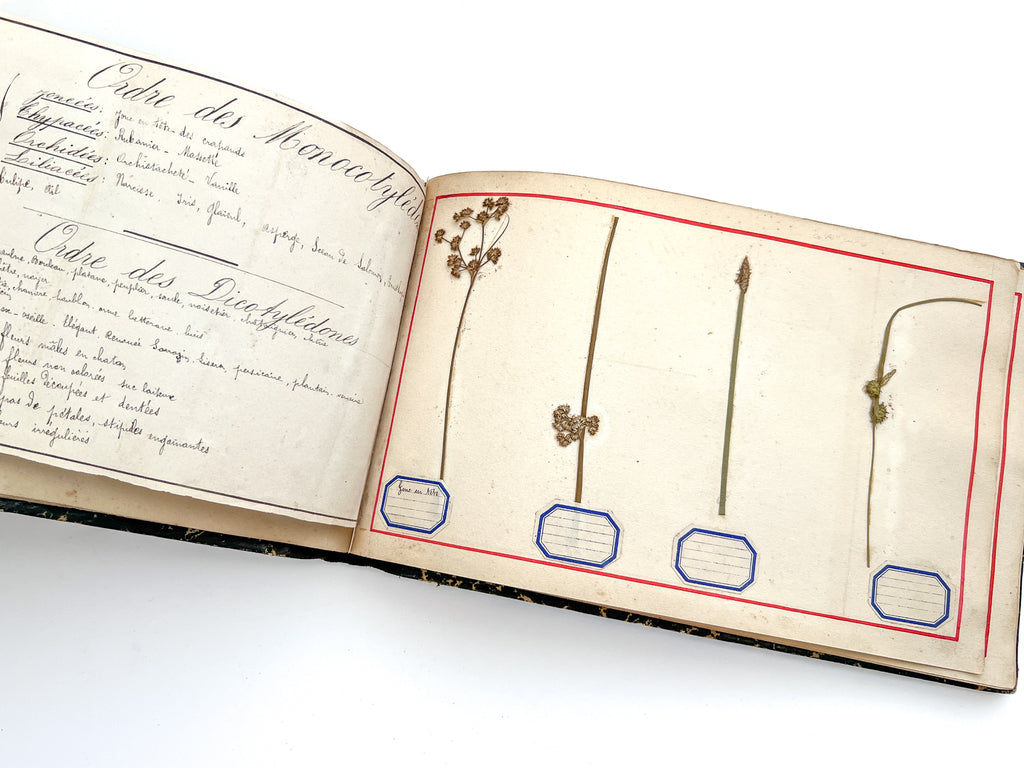 Ordre des Monocotyléd
Joncées: Jonc en tête - des crapauds
Thypacées: Rubanier - Massette
Orchidées: Orchistacheté - Vanille
Liliacées: Narcisse. Iris, Glaieul, asperge, Sceau de Salomon,
tulipe, ail
Ordre des Dicotylédones
Bouleau, platane, peuplier, saule, noisetier, châtaignier,
hêtre, noyer
chanvre houblon, orme betterave buis
oseille - Elégant. Renouée Sarrazin, liseron, persicaire, plantain -
fleurs mâles en chaton
fleurs non colorées suc laiteux
feuilles découpées et dentées
pas de pétales, stipules engainantes
irrégulières
Jonc en tête